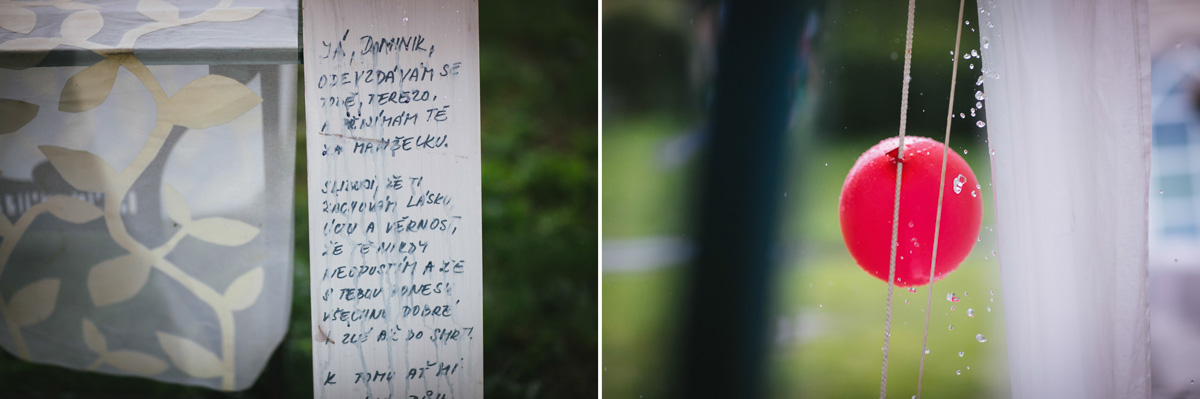 JÁ, DOMINIK,
ODEVZDÁVÁM SE
TOBĚ, TEREZO,
A PŘIJÍMÁM TĚ
ZA MANŽELKU.
SLIBUJI, ŽE TI
ZACHOVÁM LÁSKU,
ÚCTU A VĚRNOST,
ŽE TĚ NIKDY
NEOPUSTÍM A ŽE
S TEBOU PONESU
VŠECHNO DOBRÉ
I ZLÉ AŽ DO SMRTI.
K TOMU AŤ MI